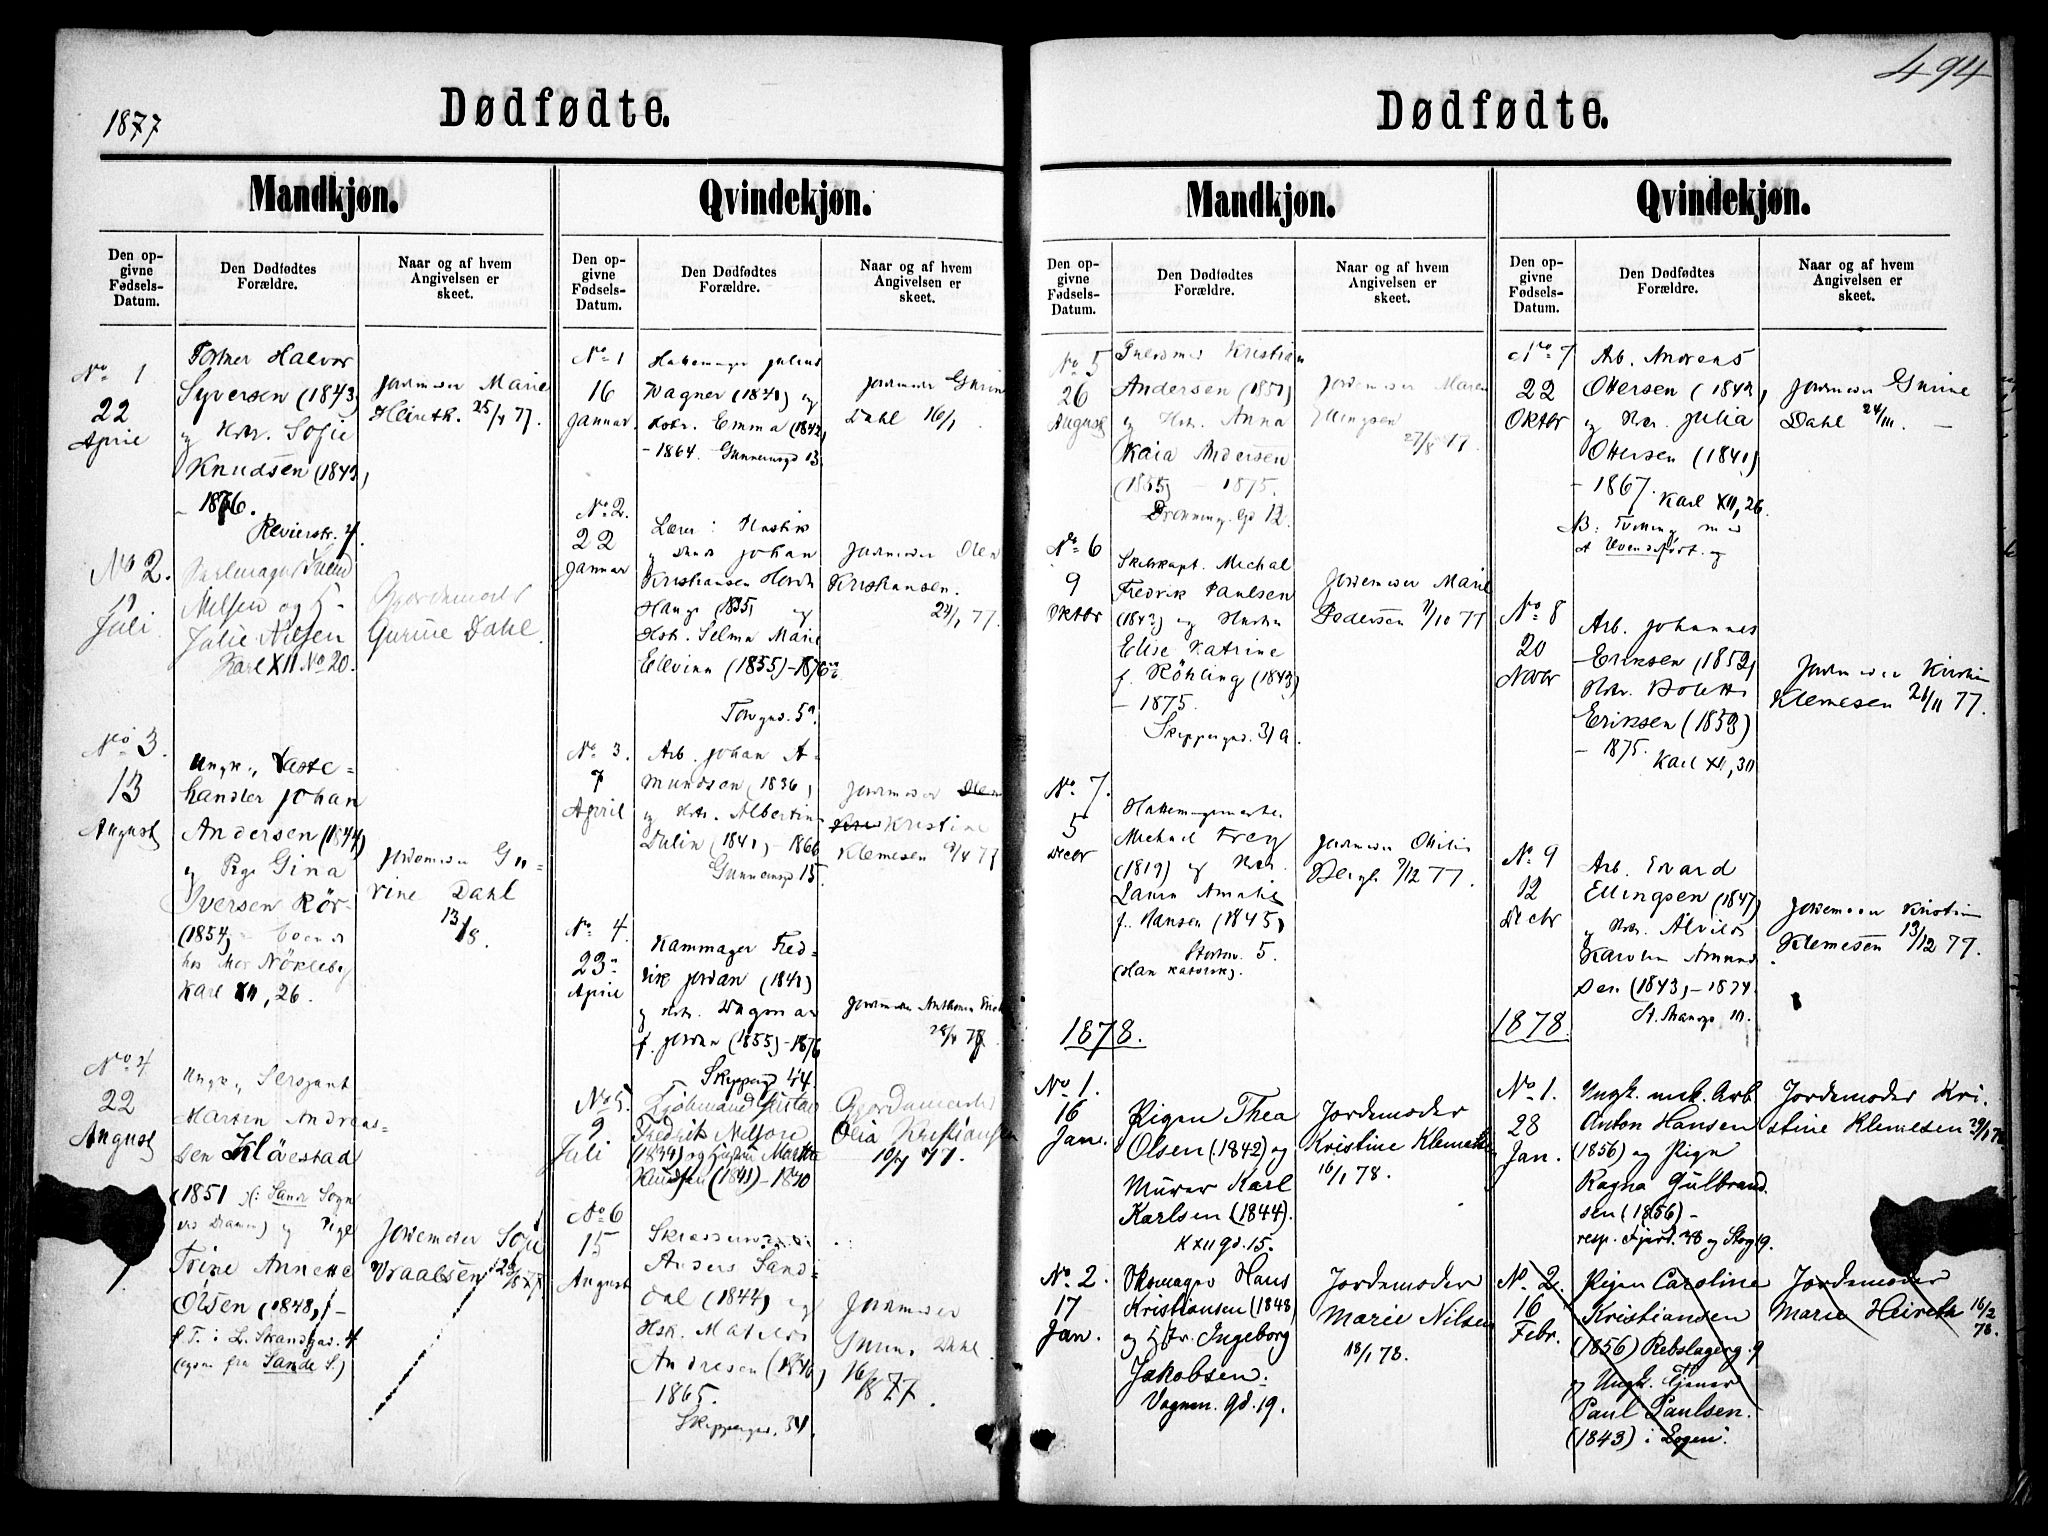 1877
Dødfødte.
Mandkjøn.
Den op-
givne
Fødsels-
Datum.
Den Dødfødtes
Forældre.
Naar og af hvem
Angivelsen er
skeet.
No 1
22
April
Halvor
Syversen (1843)
og Hstr. Sofie
Knudsen (1843)
- 1876.
Revierstr. 7.
Jordemoder Marie
Heireth. 25/4 77.
No 2.
Juli
Nilsen og H-
Julie Nilsen
Karl XII No 20.
Gjordemoder
Gurine Dahl.
No 3.
13
August
Ungk.,
handler Johan
Andersen (1844)
og Pige Gina
Iversen Rör-
(1854)
hos Mor Nökleby
Karl XII, 26.
Jordemoder Gu-
rine Dahl
13/8.
No 4
22
August
Ungk., Sersjant
Martin Andreas-
sen Klävestad
(1851 Sande Sogn
og Pige
Trine Annette
Olsen (1848) -
f T. i L. Skandsgd. 4
(egen fra Sande S.)
Jordemoder Sofie
Vraalsen 23/8 77.
Qvindekjøn.
Den op-
givne
Fødsels-
Datum.
Den Dødfødtes
Forældre.
Naar og af hvem
Angivelsen er
skeet.
No 1
16
Januar
Hattemager Julius
Wagner (1841) og
Hstr. Emma (1842)
- 1864. Gunnerusgd 13.
Jordemoder Gurine
Dahl 16/1
No 2.
22
Januar
Lærer
og Johan
Kristiansen
Hauge (1835) og
Hstr. Selma Marie
Ellevina (1855) - 1876
Torvgad. 5a.
Jordemoder Olea
Kristiansen.
24/1 77.
No 3.
7
April
Arb. Johan A-
mundsen (1836)
og Hstr. Albertine
Dulin (1841) - 1866
Gunnerusgd 15.
Jordemoder
Kristine
Klemesen 9/4 77
No 4.
23
April
Kammager Fred-
rik Jordan (1841)
og Hstr. Dagmar
f. Jordan (1855) - 1876
Skippergd 44.
Jordemoder
28/4 77.
No 5.
9
Juli
Gustav
Fredrik Nilsen
(1839) og Hustru Martha
Knudsen (1841) - 1870
Gjordemoder
Olia Kristiansen
10/7 77.
No 6
15
August
Anders Sand-
dal (1844) og
Hsk. Matilde
Andresen (1846)
- 1865.
Skippergd. 34.
Jordemoder
Gurine Dahl.
16/8
1877.
494
Dødfødte.
Mandkjøn.
Den op-
givne
Fødsels-
Datum.
Den Dødfødtes
Forældre.
Naar og af hvem
Angivelsen er
skeet.
No 5
26
August
Kristian
Andersen (1851)
og Hstr. Anna
Kaia Andersen
(1855) - 1875.
Dronning. Gd 12.
Jordemoder Maren
Ellingsen
27/8 77.
No 6
9
Oktbr
Skibskapt. Michal
Fredrik Paulsen
(1843) og Hustru
Elise Katrine
f. Röhling (1843)
- 1875.
Skippergad. 31a.
Jordemoder Marie
Pedersen 9/10 77
No 7.
5
Decbr
Hattemagermester
Michael Frey
(1819) og Hstr.
Laura Amalie
f. Hansen (1845)
Storhm. 5.
(Han katolik).
Jordemoder Otilie
Bergh 7/12 77.
1878.
No 1.
16
Jan.
Pigen Thea
Olsen (1842) og
Murer Karl
Karlsen (1844).
K XII gd. 15.
Jordemoder
Kristine Klemetsen
16/1 78.
No 2.
17
Jan.
Skomager Hans
Kristiansen (1848)
og Hstr. Ingeborg
Jakobsen.
Vognm. gd. 19.
Jordemoder
Marie Nilsen
18/1 78.
Qvindekjøn.
Den op-
givne
Fødsels-
Datum.
Den Dødfødtes
Forældre.
Naar og af hvem
Angivelsen er
skeet.
No 7
22
Oktbr
Arb. Andreas
Ottersen (1842)
og Hstr. Julia
Ottersen (1841)
- 1867. Karl XII, 26.
NB: Tvilling med
et og
Jordemoder Gurine
Dahl 24/10. -
No 8
20
Novbr
Arb. Johannes
Eriksen (1852)
Hstr. Bolette
Eriksen (1853)
- 1875. Karl XII, 30
Jordemoder Kristine
Klemesen 21/11 77.
No 9
12
Decbr
Arb. Evard
Ellingsen (1847)
og Hstr. Alvilde
Karoline Amund
sen (1843) - 1874.
Jordemoder Kristine
Klemesen 13/12 77.
1878.
No 1.
28
Jan.
Ungk. mek. Arb.
Anton Hansen
(1856) og Pigen
Ragna Gulbrand.
sen (1856) -
resp. Fjerd. 38 og Stog 9.
Jordemoder Kri.
stine Klemesen 29/1 78
No 2.
16
Febr.
Pigen Caroline
Kristiansen
(1856) Rebslagerg. 9
og Ungk. Tjener
Paul Paulsen.
(1843) i Logen.
Jordemoder
Marie Heireth 16/2
78.